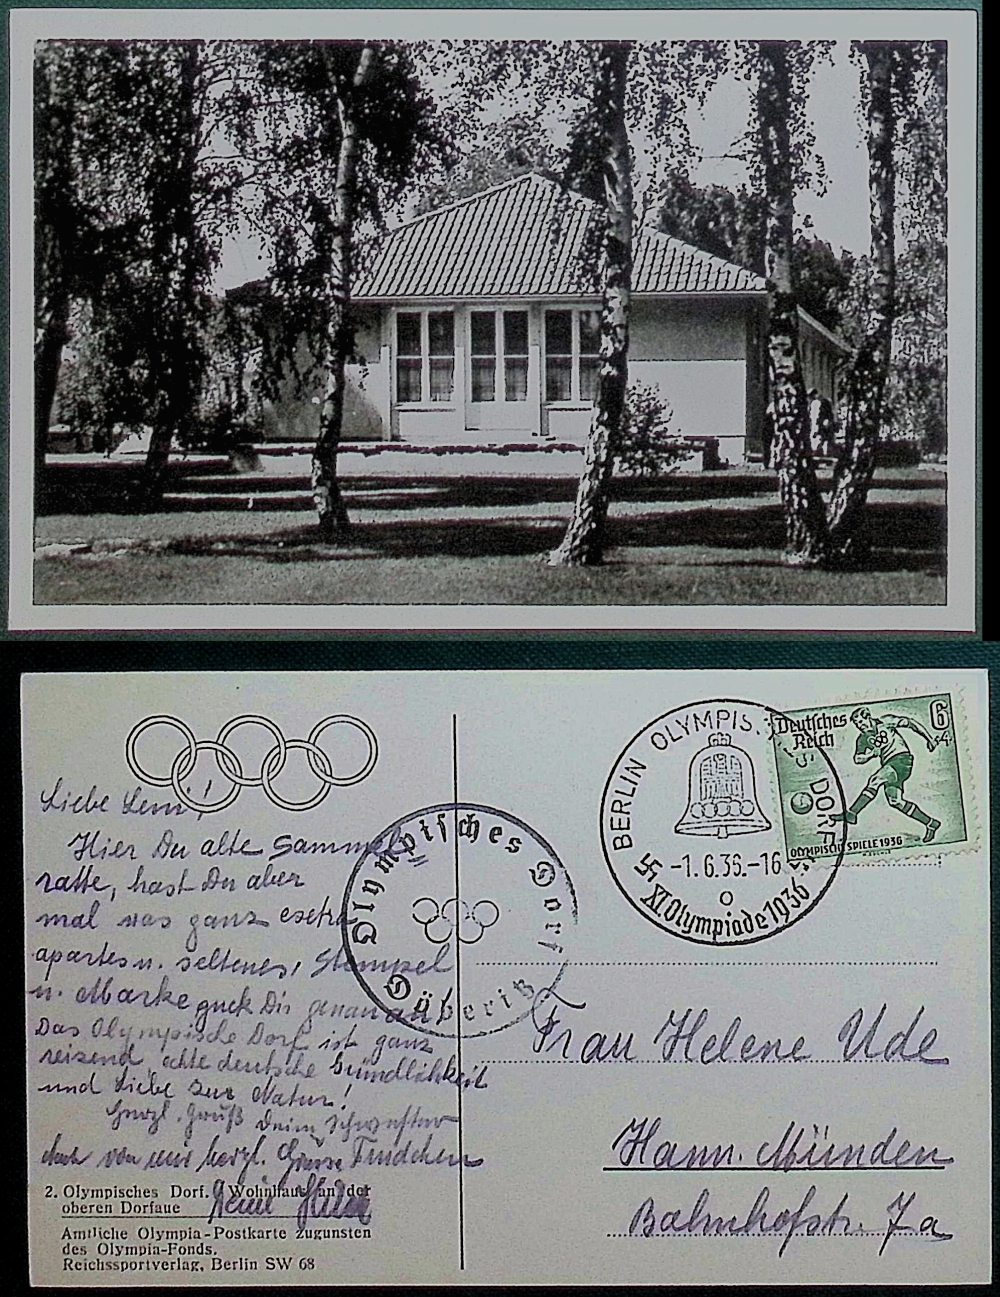 Liebe Leni!
Hier Du alte Sammel
ratte, hast Du aber
mal was ganz extra
apartes u. seltenes, Stempel
u. Marke guck Dir genau an!
Das Olympische Dorf ist ganz
reizend, echte deutsche Gründlichkeit
und Liebe zur Natur!
Herzl. Gruß Deine Schwester
Auch von mir herzl. Grüsse
2. Olympisches Dorf. Wohnhaus an der
oberen Dorfaue
Amtliche Olympia-Postkarte zugunsten
des Olympia-Fonds.
Reichssportverlag, Berlin SW 68
Olympisches Dorf
Döberitz
BERLIN OLYMPISCHES DORF
-1.6.36.-16
XI. Olympiade 1936
Deutsches
Reich
6
+4
OLYMPISCHE SPIELE 1936
Frau Helene Ude
Hann. Münden
Bahnhofstr. 7a